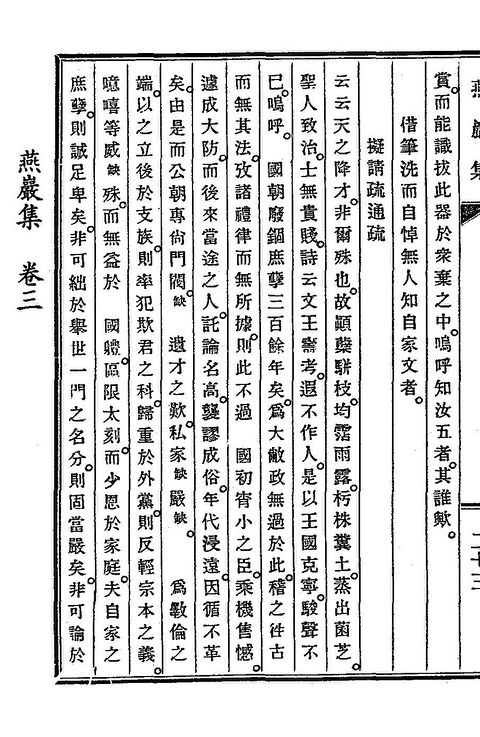 燕巖集
賞而能識拔此器於衆棄之中。嗚呼知汝五者其誰歟。
借筆洗而自悼無人知自家文者。
擬請疏通疏
云云天之降才。非爾殊也。故顚蘖騈枝。均霑雨露。朽株糞土。蒸出菌芝。
聖人致治。士無貴賤。詩云文王壽考。遐不作人。是以王國克寧。駿聲不
已。嗚呼。 國朝廢錮庶孼三百餘年矣。爲大敝政無過於此。稽之往古
而無其法。攷諸禮律而無所據。則此不過 國初宵小之臣。乘機售憾。
遽成大防。而後來當途之人。託論名高。襲謬成俗。年代浸遠。因循不革
矣。由是而公朝專尙門閥。缺 遺才之歎。私家缺嚴缺。 爲斁倫之
端。以之立後於支族。則率犯欺君之科。歸重於外黨。則反輕宗本之義。
噫嘻等威缺殊。而無益於 國軆。區限太刻。而少恩於家庭。夫自家之
庶孼。則誠足卑矣。非可絀於擧世一門之名分。則固當嚴矣。非可論於
燕巖集 卷三